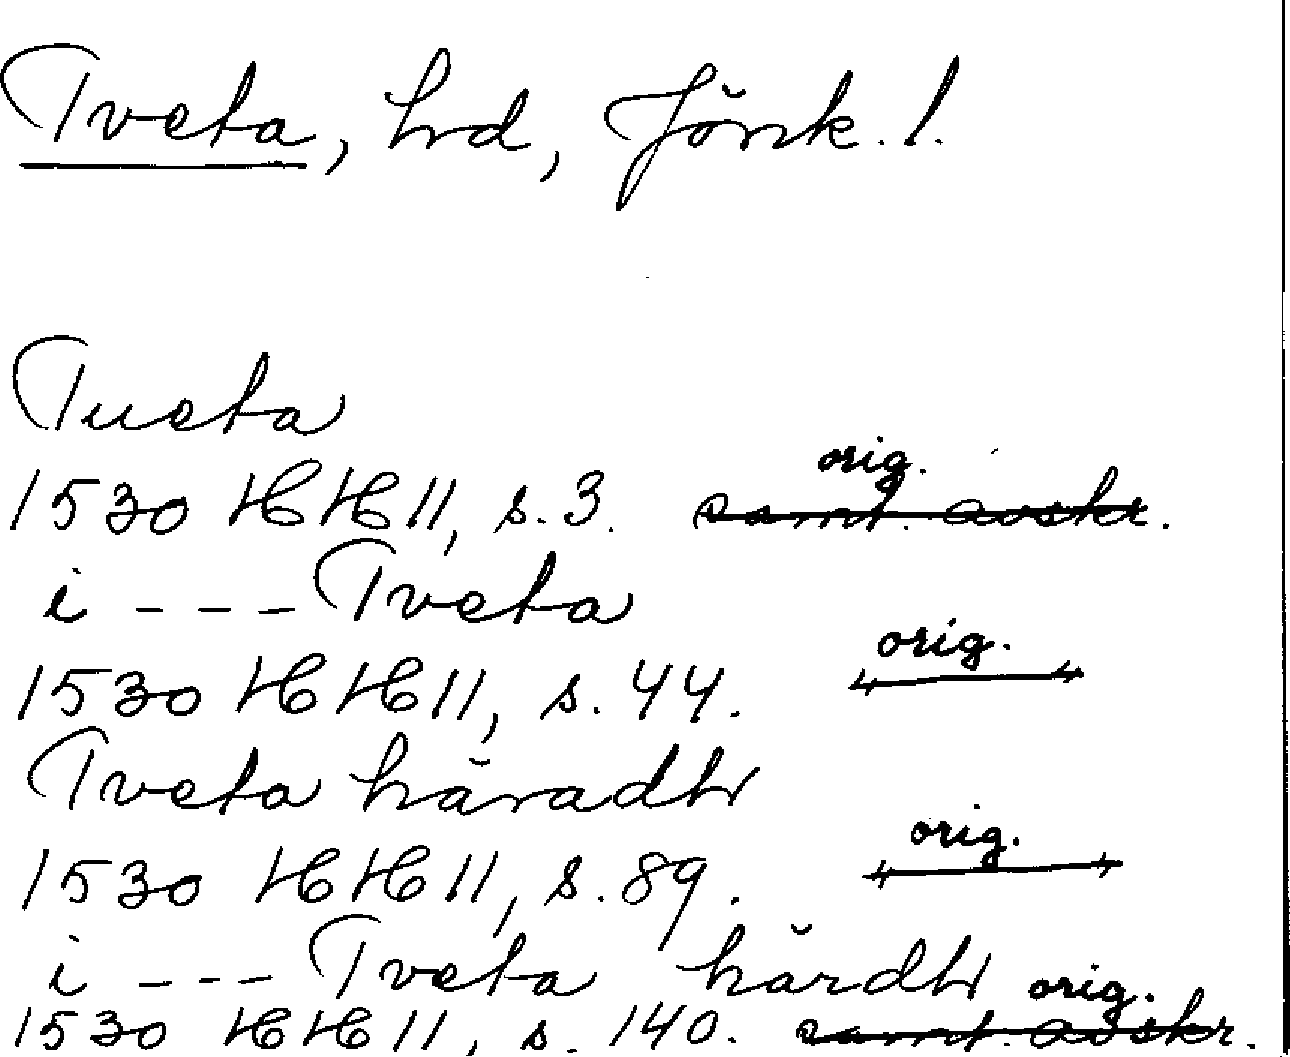 Tveta, hd, Jönk. l.
Tueta
1530 HH 11, s. 3. orig. samt. avskr.
i - - - Tveta
1530 HH 11, s. 44. orig.
Tveta häradh
1530 HH 11, s. 89. orig.
i - - - Tveta härdh
1530 HH 11, s. 140. orig. samt. avskr.